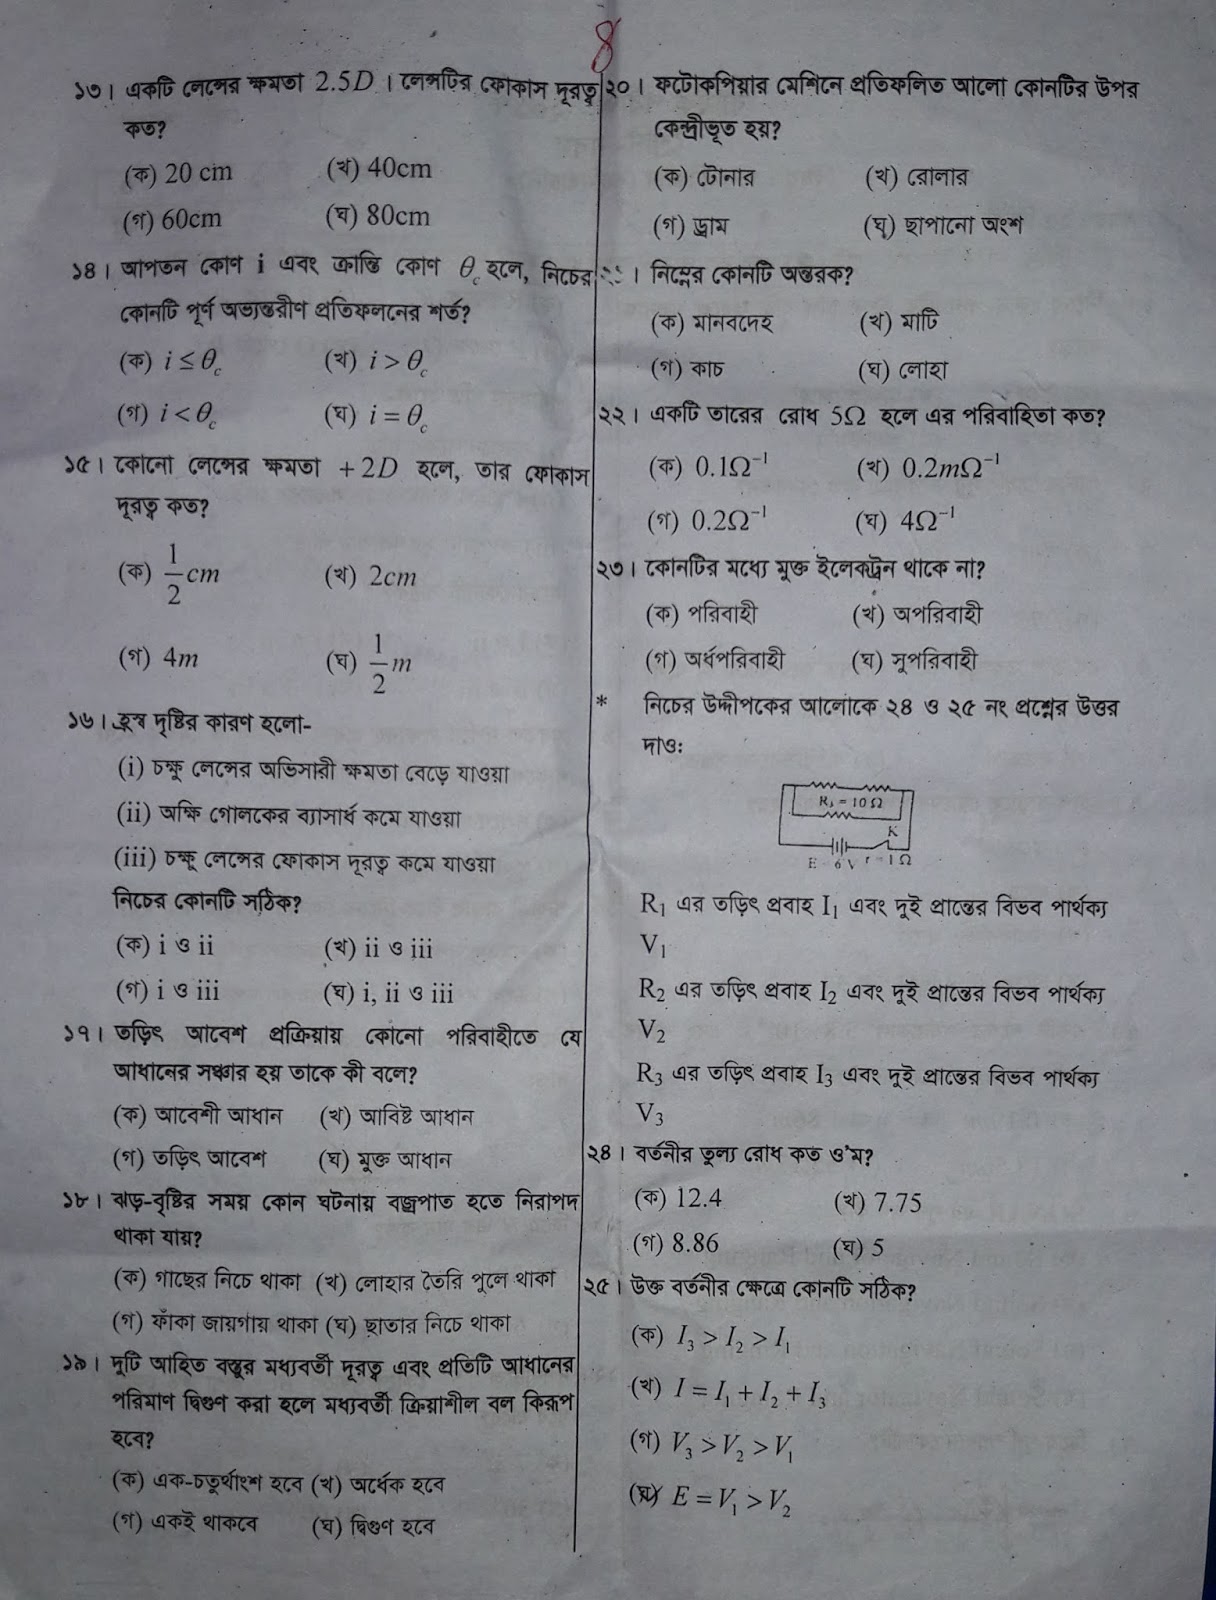 8
১৩। একটি লেন্সের ক্ষমতা 2.5D । লেন্সটির ফোকাস দূরত্ব
কত?
(ক) 20 cm (খ) 40cm
(গ) 60cm (ঘ) 80cm
১৪। আপতন কোণ i এবং ক্রান্তি কোণ θc হলে, নিচের
কোনটি পূর্ণ অভ্যন্তরীণ প্রতিফলনের শর্ত?
(ক) i ≤ θc (খ) i > θc
(গ) i < θc (ঘ) i = θc
১৫। কোনো লেন্সের ক্ষমতা +2D হলে, তার ফোকাস
দূরত্ব কত?
(ক) 1/2 cm (খ) 2cm
(গ) 4m (ঘ) 1/2 m
১৬। হ্রস্ব দৃষ্টির কারণ হলো-
(i) চক্ষু লেন্সের অভিসারী ক্ষমতা বেড়ে যাওয়া
(ii) অক্ষি গোলকের ব্যাসার্ধ কমে যাওয়া
(iii) চক্ষু লেন্সের ফোকাস দূরত্ব কমে যাওয়া
নিচের কোনটি সঠিক?
(ক) i ও ii (খ) ii ও iii
(গ) i ও iii (ঘ) i, ii ও iii
১৭। তড়িৎ আবেশ প্রক্রিয়ায় কোনো পরিবাহীতে যে
আধানের সঞ্চার হয় তাকে কী বলে?
(ক) আবেশী আধান (খ) আবিষ্ট আধান
(গ) তড়িৎ আবেশ (ঘ) মুক্ত আধান
১৮। ঝড়-বৃষ্টির সময় কোন ঘটনায় বজ্রপাত হতে নিরাপদ
থাকা যায়?
(ক) গাছের নিচে থাকা (খ) লোহার তৈরি পুলে থাকা
(গ) ফাঁকা জায়গায় থাকা (ঘ) ছাতার নিচে থাকা
১৯। দুটি আহিত বস্তুর মধ্যবর্তী দূরত্ব এবং প্রতিটি আধানের
পরিমাণ দ্বিগুণ করা হলে মধ্যবর্তী ক্রিয়াশীল বল কিরূপ
হবে?
(ক) এক-চতুর্থাংশ হবে (খ) অর্ধেক হবে
(গ) একই থাকবে (ঘ) দ্বিগুণ হবে
২০। ফটোকপিয়ার মেশিনে প্রতিফলিত আলো কোনটির উপর
কেন্দ্রীভূত হয়?
(ক) টোনার (খ) রোলার
(গ) ড্রাম (ঘ) ছাপানো অংশ
। নিম্নের কোনটি অন্তরক?
(ক) মানবদেহ (খ) মাটি
(গ) কাচ (ঘ) লোহা
২২। একটি তারের রোধ 5Ω হলে এর পরিবাহিতা কত?
(ক) 0.1Ω⁻¹ (খ) 0.2mΩ⁻¹
(গ) 0.2Ω⁻¹ (ঘ) 4Ω⁻¹
২৩। কোনটির মধ্যে মুক্ত ইলেকট্রন থাকে না?
(ক) পরিবাহী (খ) অপরিবাহী
(গ) অর্ধপরিবাহী (ঘ) সুপরিবাহী
* নিচের উদ্দীপকের আলোকে ২৪ ও ২৫ নং প্রশ্নের উত্তর
দাও:
= 10 Ω
K
E 6V r = 1 Ω
R₁ এর তড়িৎ প্রবাহ I₁ এবং দুই প্রান্তের বিভব পার্থক্য
V₁
R₂ এর তড়িৎ প্রবাহ I₂ এবং দুই প্রান্তের বিভব পার্থক্য
V₂
R₃ এর তড়িৎ প্রবাহ I₃ এবং দুই প্রান্তের বিভব পার্থক্য
V₃
২৪। বর্তনীর তুল্য রোধ কত ও'ম?
(ক) 12.4 (খ) 7.75
(গ) 8.86 (ঘ) 5
২৫। উক্ত বর্তনীর ক্ষেত্রে কোনটি সঠিক?
(ক) I₃ > I₂ > I₁
(খ) I = I₁ + I₂ + I₃
(গ) V₃ > V₂ > V₁
(ঘ) E = V₁ > V₂